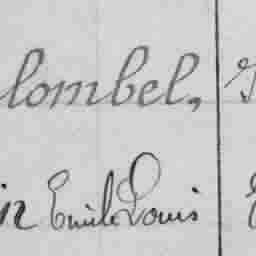 lombel,
in Emile Louis